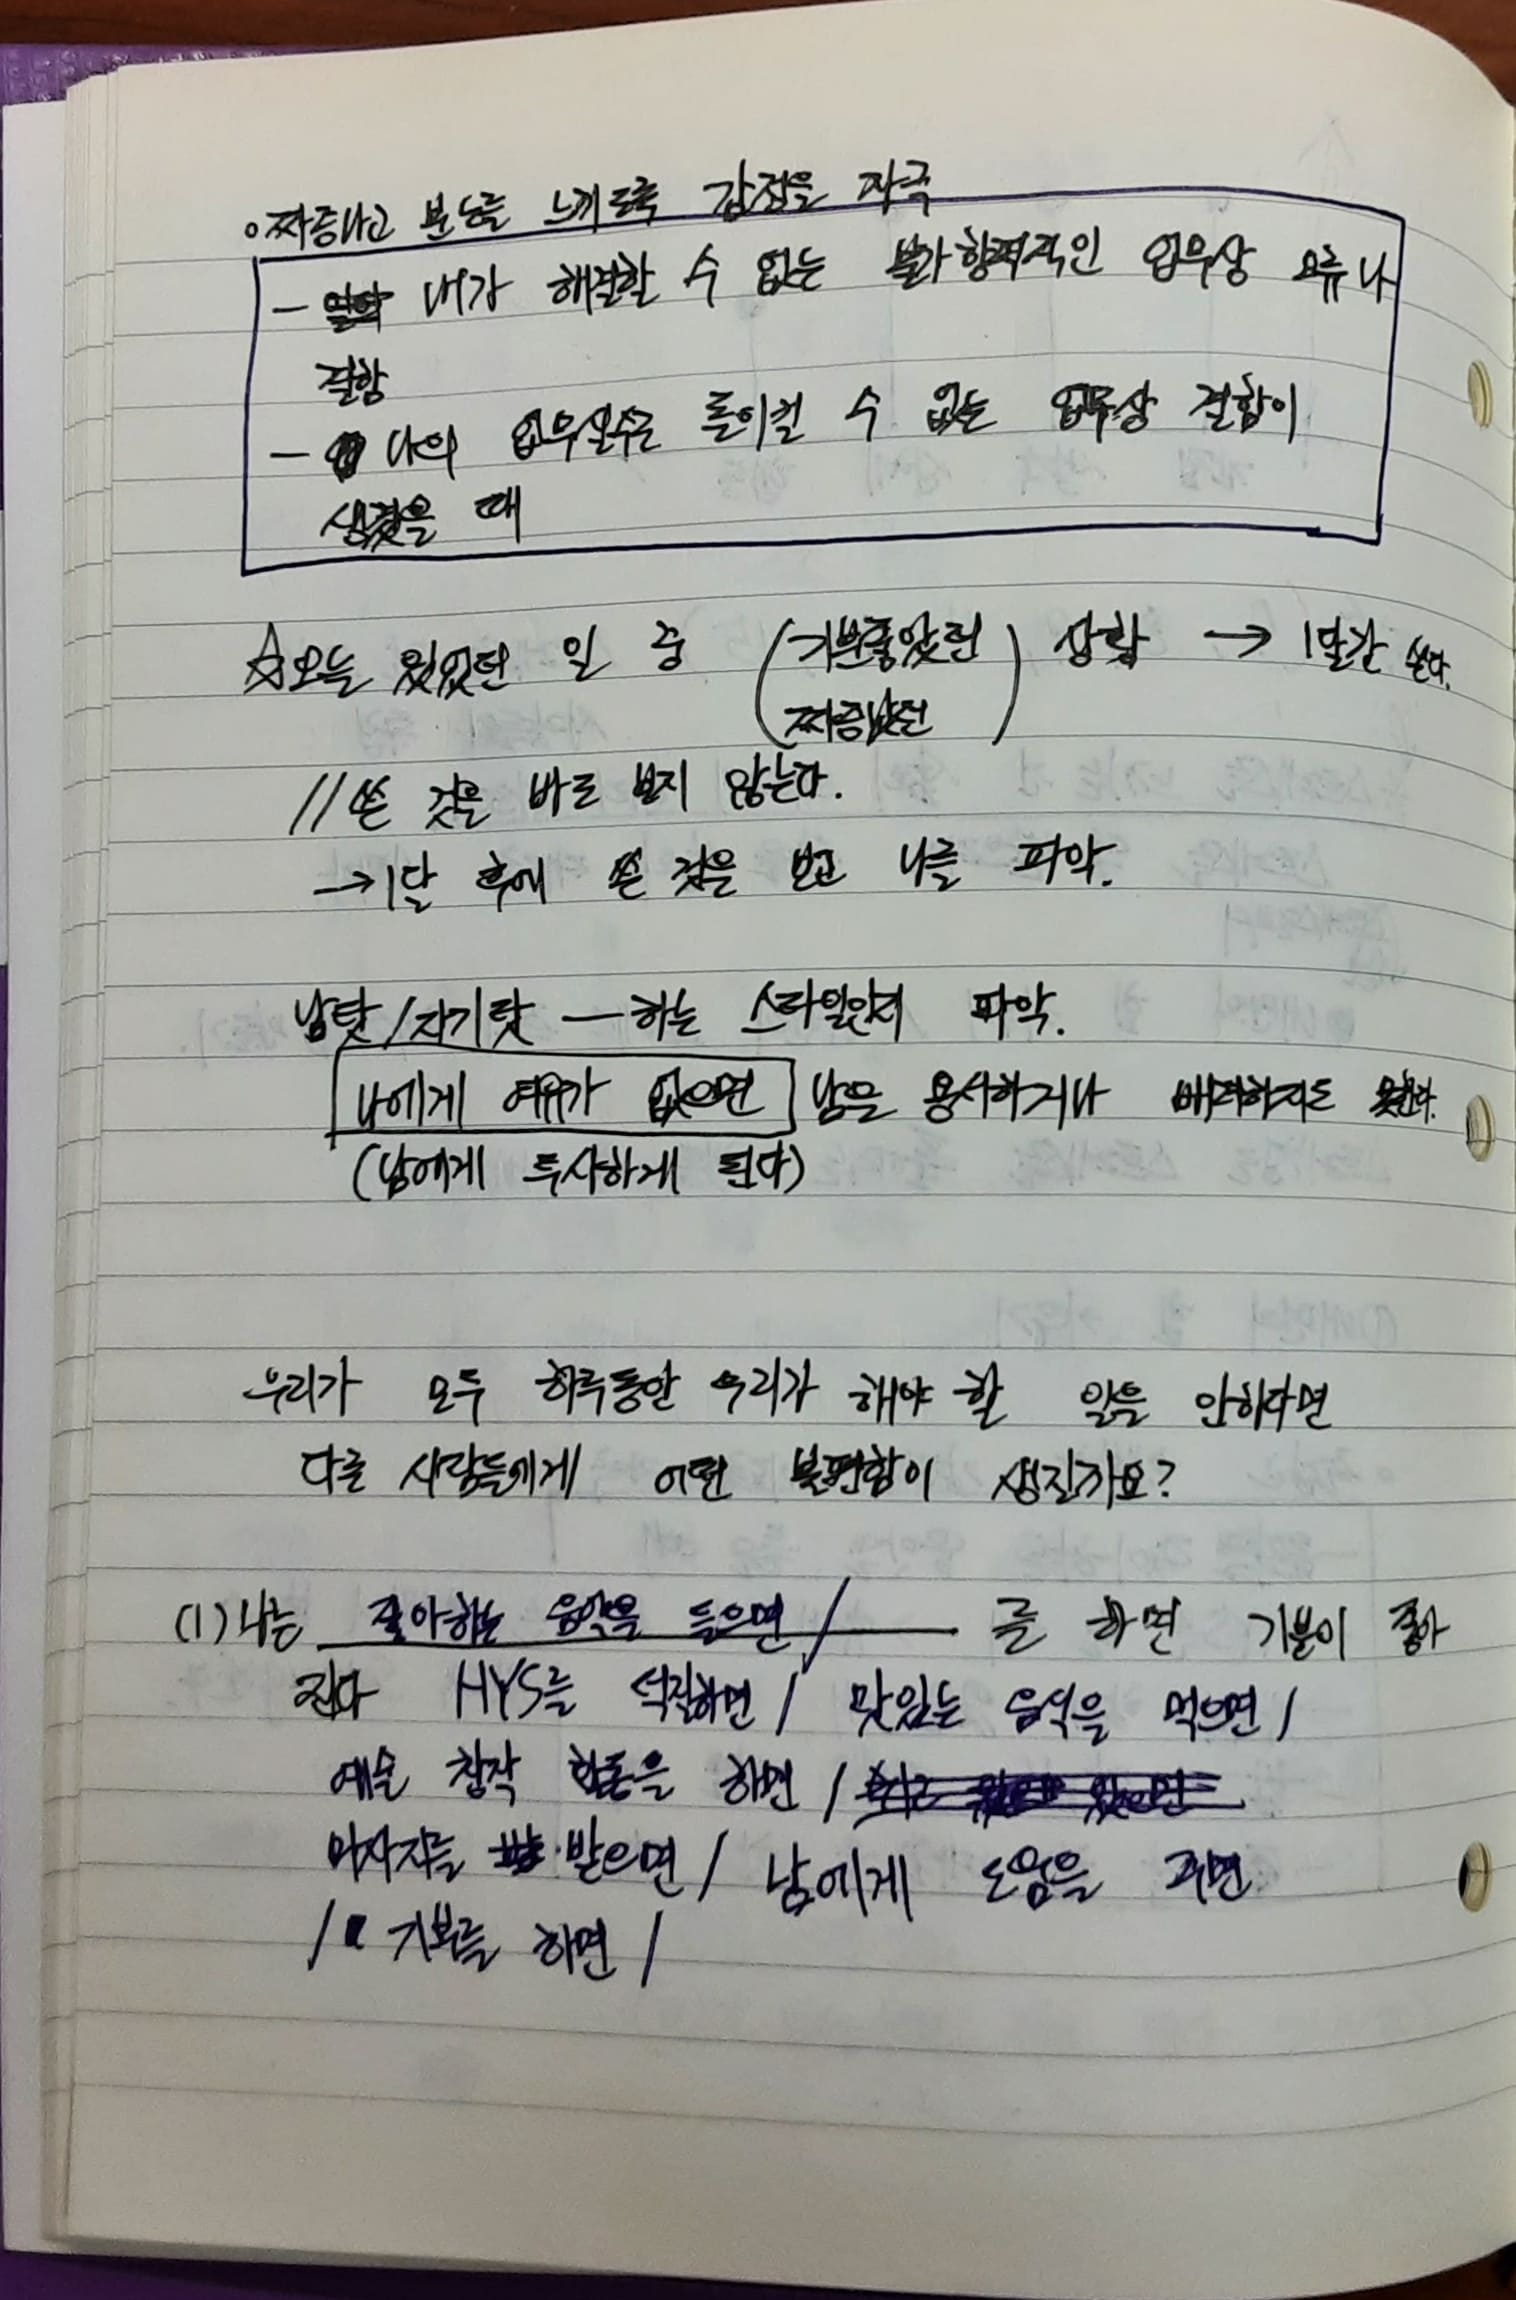 ○ 짜증나고 분노를 느끼도록 감정을 자극
- 내가 해결할 수 없는 불가항력적인 업무상 오류나
결함
- 나의 업무실수로 돌이킬 수 없는 업무상 결함이
생겼을 때
☆오늘 있었던 일 중 (기분좋았던) 상황 → 1달간 쓴다.
(짜증났던)
// 쓴 것을 바로 보지 않는다.
→1달 후에 쓴 것을 보고 나를 파악.
남탓/자기탓 — 하는 스타일인지 파악.
나에게 여유가 없으면 남을 용서하거나 배려하지도 못한다.
(남에게 투사하게 된다)
우리가 모두 하루동안 우리가 해야 할 일을 안하다면
다른 사람들에게 어떤 불편함이 생길까요?
(1) 나는 좋아하는 음악을 들으면 / 를 하면 기분이 좋아
진다 HYS를 덕질하면 / 맛있는 음식을 먹으면 /
예술 창작 활동을 하면 /
마사지를 받으면 / 남에게 도움을 주면
/ 기부를 하면 /